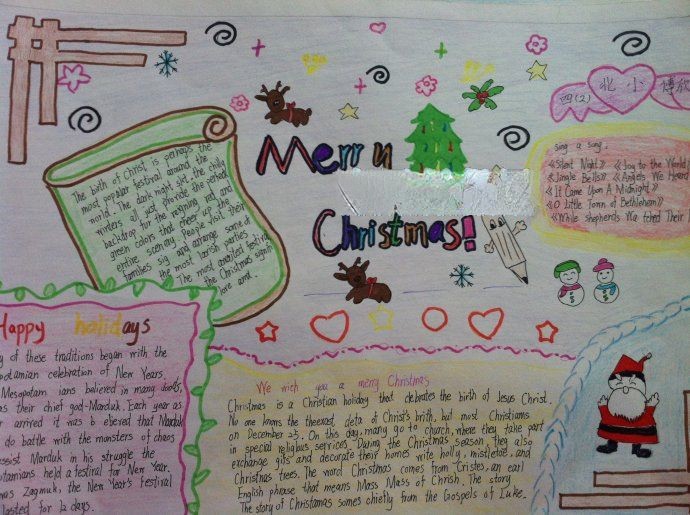 Merry
Christmas!
The birth of Christ is perhaps the
most popular festival around the
world. The dark night and the chilly
winters all just provide the perfect
backdrop for the ravishing red and
green colors that cheer up the
entire scenery. People visit their
families sig and arrange some of
the most lavish parties
The most awaited festival
the Christmas signifi
here and.
四(2) 北小
sing a song.
《Silent Night》 《Joy to the World
《Jingle Bells》 《Angels We Heard
《It Came Upon A Midnight》
《O Little Town of Bethlehem》
《While Shepherds Wa tched Their
Happy halidays
y of these traditions began with the
opotamian celebration of New Years,
Mesopotam ians believed in many
as their chief god-Marduk. Each year as
arrived it was b elieved that Marduk
do battle with the monsters of chaos
assist Marduk in his struggle the
otamians held a festival for New Year.
was Zagmuk, the New Year's Festival
lasted for 12 days.
We wich you a merry Christmas
Christmas is a Christian holiday that debrates the birth of Jesus Christ.
No one knows theexact, data of Christ's brith, but most Christians
on December 25. On this day, many go to church, where they take part
in special religbus, services. During the Christmas season, they also
exchange gits and decorate their homes write holly, mistletoe, and
Christmas trees. The word Christmas comes from Cristes, an earl
English phrase that means Mass Mass of Chrish. The story
The story of Christamas somes chietly from the Gospels of Luke.